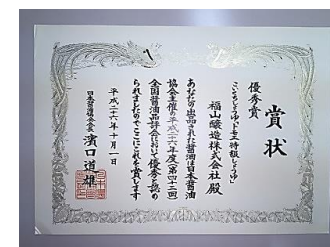 賞状
優秀賞
こいくちしょうゆ
特級しょうゆ
福山醸造株式会社 殿
あなたの出品された醤油は日本醤油
協会主催の平成二十六年度(第四十二回)
全国醤油品評会において優秀と認め
られましたのでここにこれを賞します
平成二十六年十月一日
日本醤油協会会長 濱口道雄